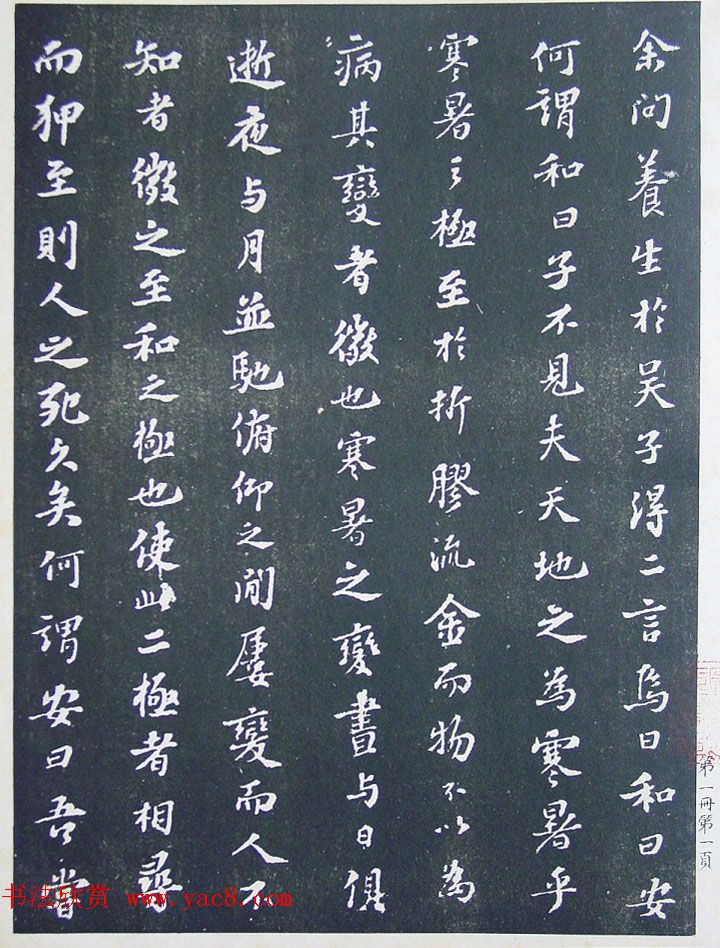 余問養生於吴子得二言焉曰和曰安
何謂和曰子不見夫天地之為寒暑乎
寒暑之極至於折膠流金而物不以為
病其變者微也寒暑之變晝與日俱
逝夜与月並馳俯仰之間屢變而人不
知者微之至和之極也使此二極者相尋
而狎至則人之死久矣何謂安曰吾嘗
第一冊第一頁
书法欣赏 www.yac8.com